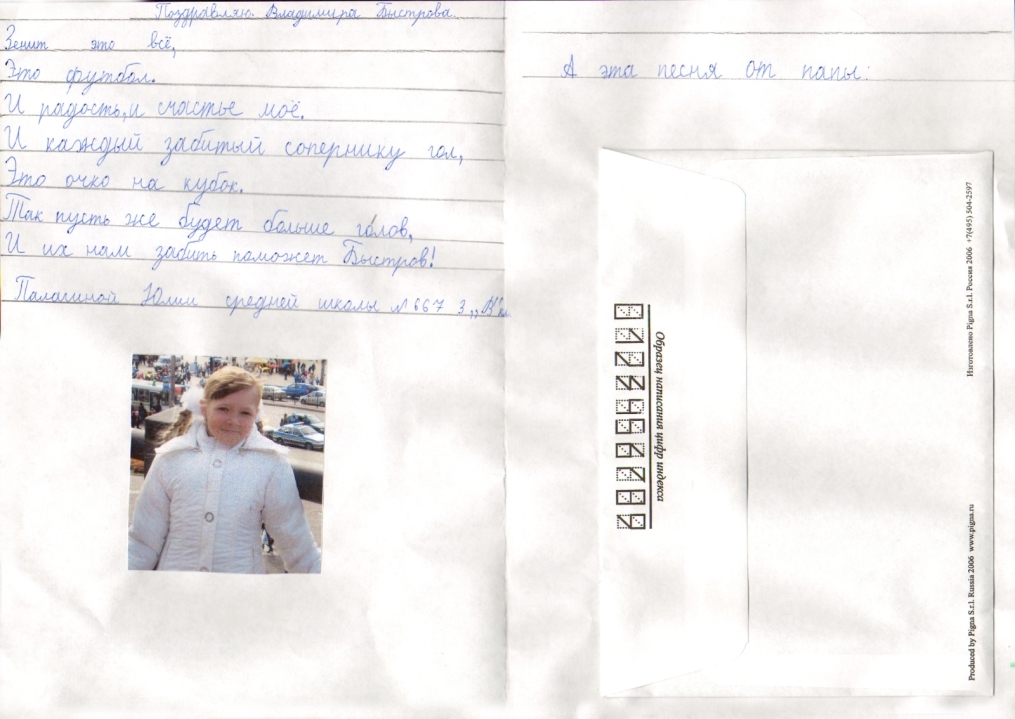 Поздравляю Владимира Быстрова.
Зенит это всё,
Это футбол.
И радость, и счастье моё.
И каждый забитый сопернику гол,
Это очко на кубок.
Так пусть же будет больше голов,
И их нам забить поможет Быстров!
Палагиной Юлии средней школы №667 3 „В"кл
А эта песня от папы:
Образец написания цифр индекса
Изготовлено Pigna S.r.l. Россия 2006 +7(495) 504-2597
Produced by Pigna S.r.l. Russia 2006 www.pigna.ru